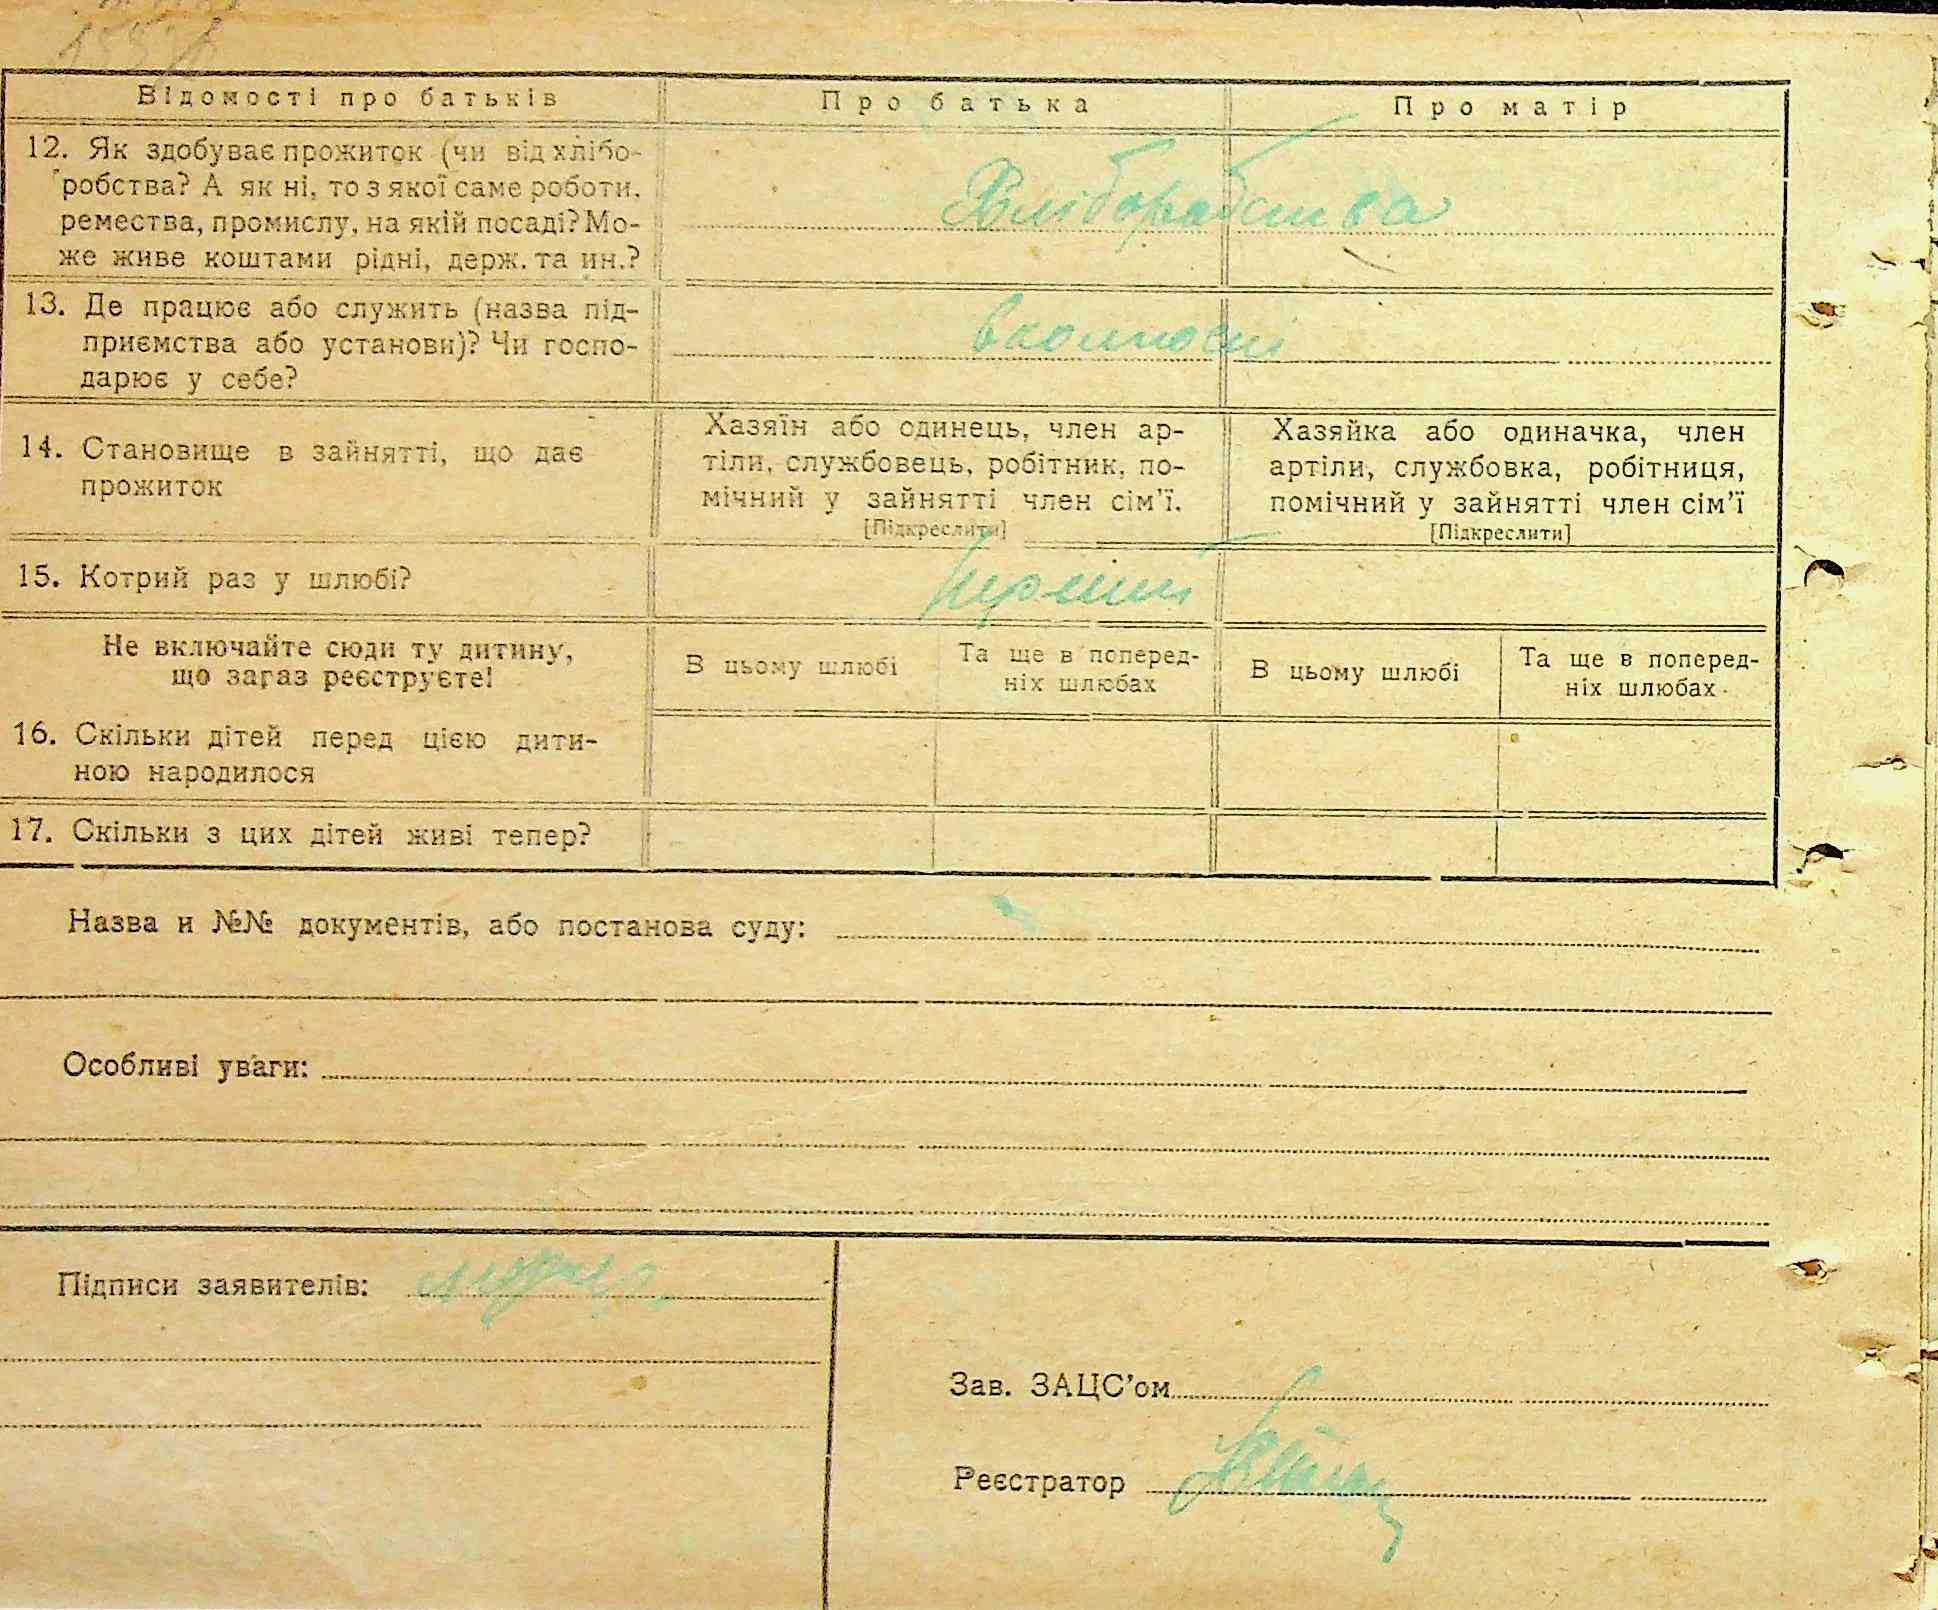 Відомості про батьків
Про батька
Про матір
12. Як здобуває прожиток (чи від хлібо-
робства? А як ні, то з якої саме роботи,
ремества, промислу, на якій посаді? Мо-
же живе коштами рідні, держ. та ин.?
Хлібороbства
13. Де працює або служить (назва під-
приємства або установи)? Чи госпо-
дарює у себе?
14. Становище в зайнятті, що дає
прожиток
Хазяїн або одинець, член ар-
тіли, службовець, робітник, по-
мічний у зайнятті член сім'ї.
[Підкреслити]
Хазяйка або одиначка, член
артіли, службовка, робітниця,
помічний у зайнятті член сім'ї
[Підкреслити]
15. Котрий раз у шлюбі?
Не включайте сюди ту дитину,
що зараз реєструєте!
В цьому шлюбі
Та ще в поперед-
ніх шлюбах
В цьому шлюбі
Та ще в поперед-
ніх шлюбах
16. Скільки дітей перед цією дити-
ною народилося
17. Скільки з цих дітей живі тепер?
Назва и №№ документів, або постанова суду:
Особливі уваги:
Підписи заявителів:
Зав. ЗАЦС'ом
Реєстратор